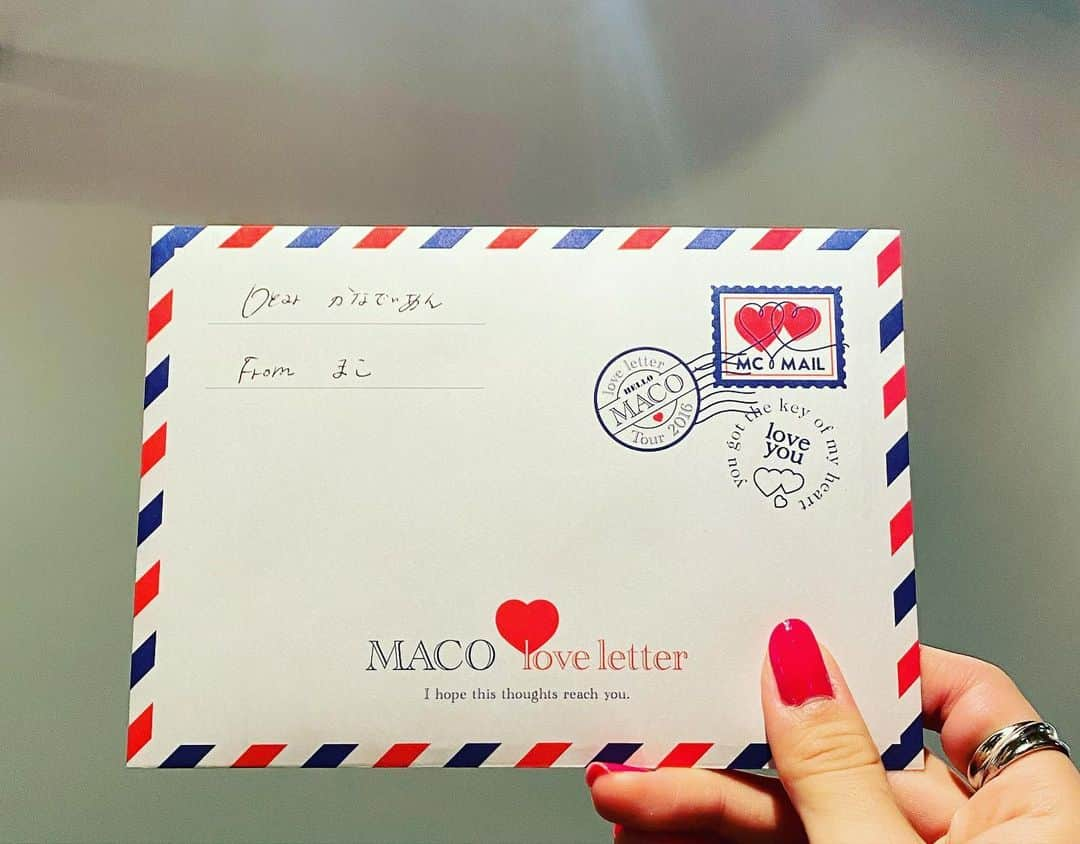 Dear かなでぃあん
From まこ
MC MAIL
love letter
HELLO
MACO
Tour 2016
you got the key of my heart
love
you
MACO love letter
I hope this thoughts reach you.